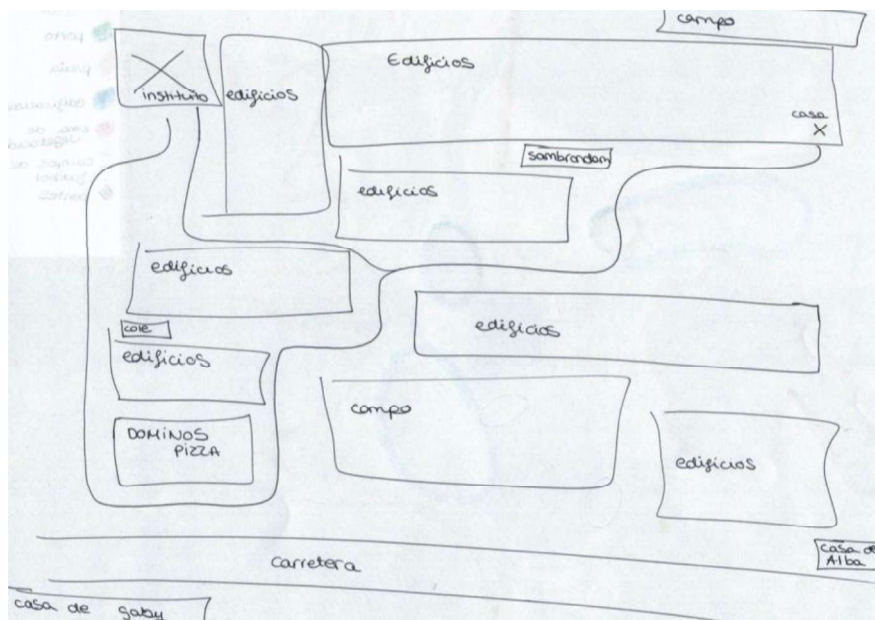 campo
Edificios
instituto
edificios
casa
X
sambrandan
edificios
edificios
edificios
cole
edificios
campo
DOMINOS
PIZZA
edificios
carretera
casa de
Alba
casa de gaby